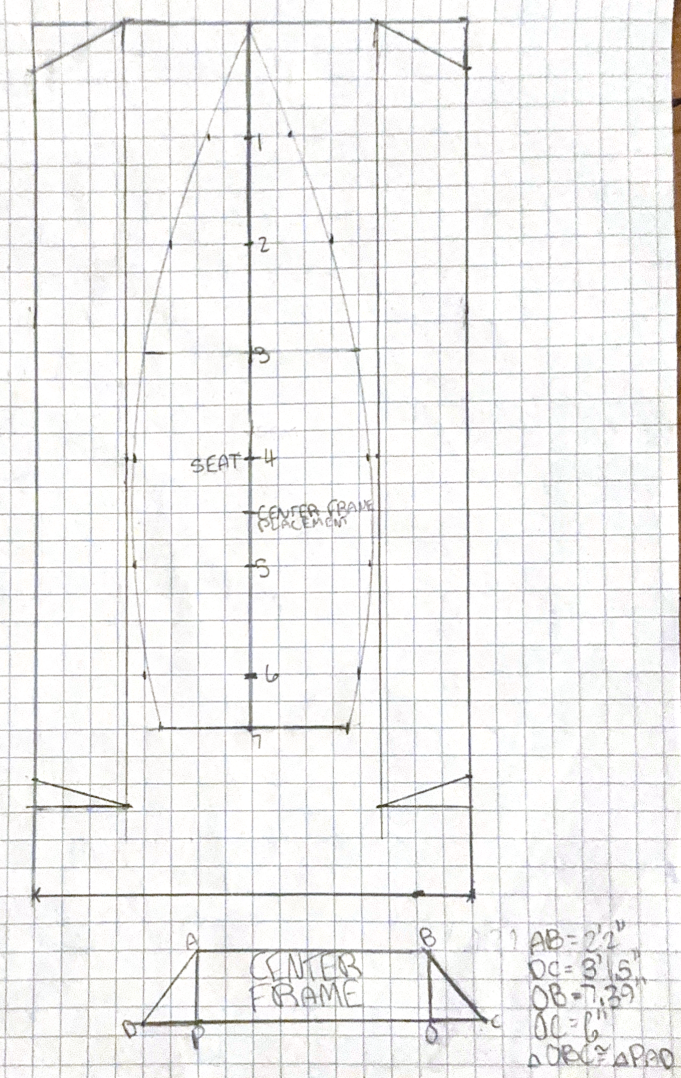 1
2
3
SEAT 4
CENTER FRAME
PLACEMENT
5
6
7
A B
CENTER
FRAME
D P O C
AB=2'2"
DC=3'1.5"
OB=7.39"
OC=6"
△OBC≅△PAD